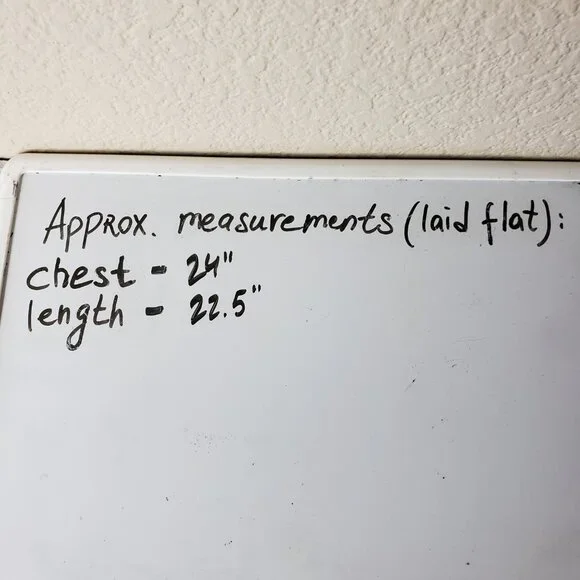 Approx. measurements (laid flat):
chest - 24"
length - 22.5"